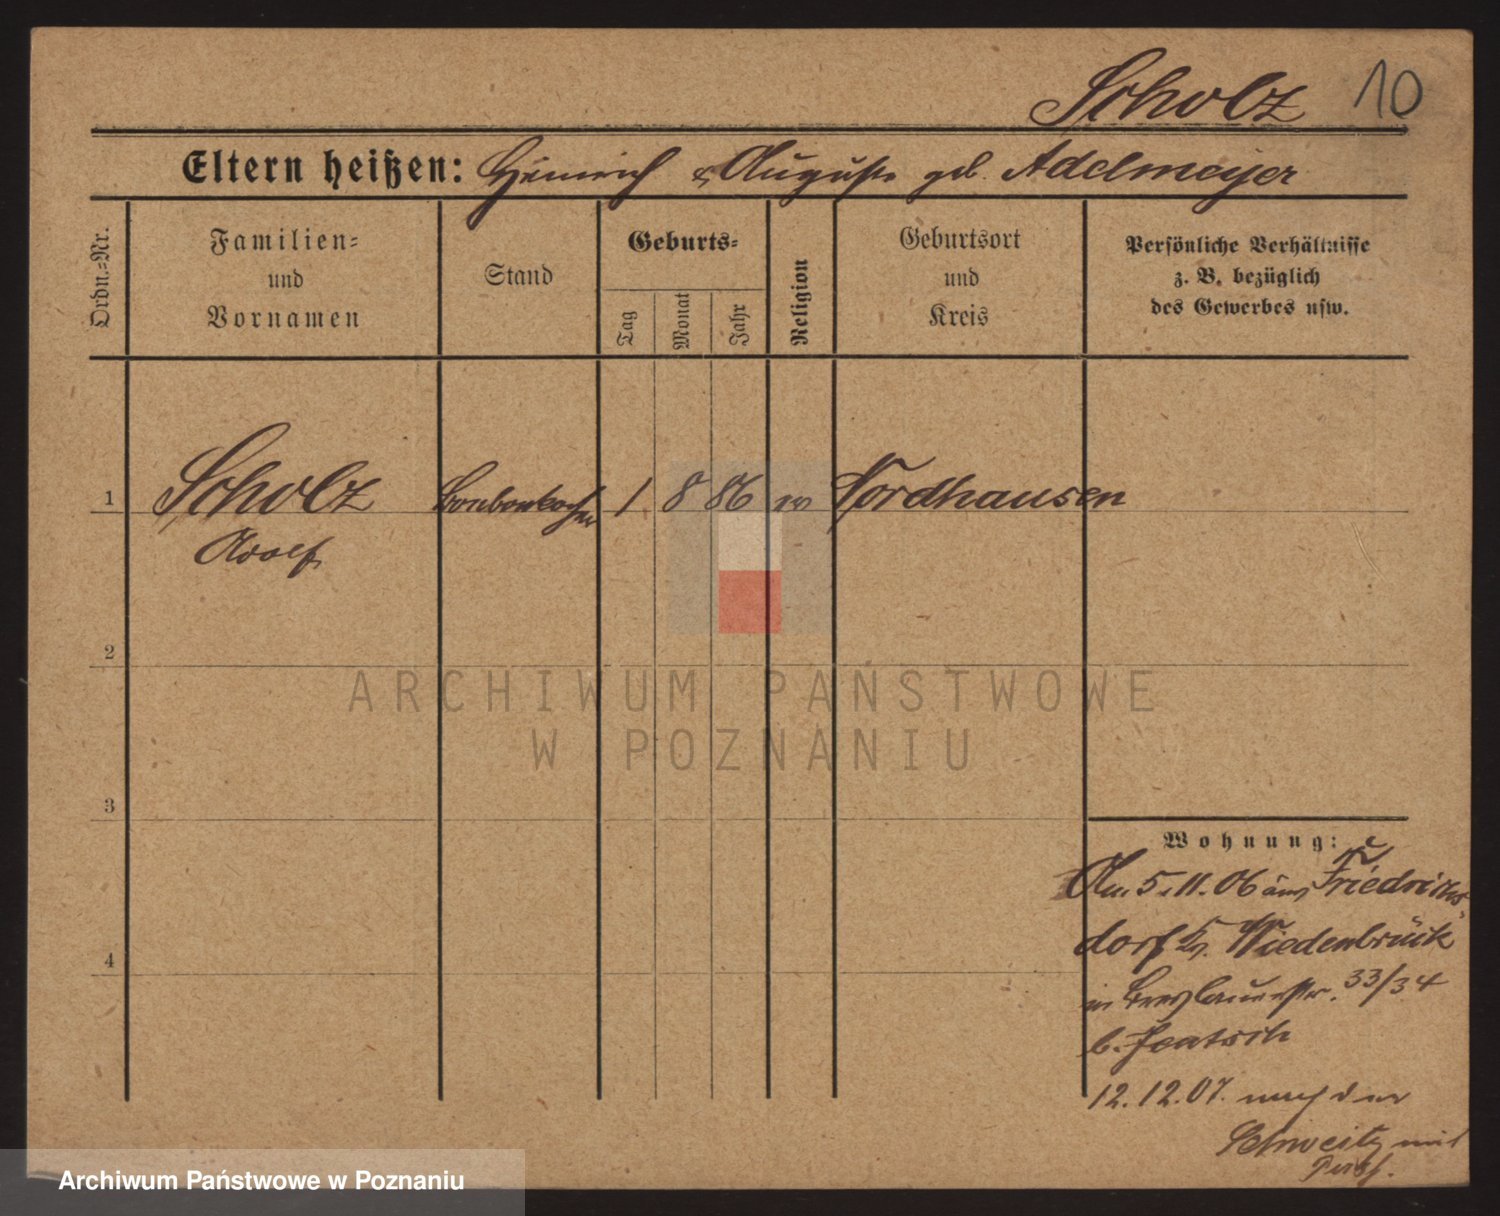 Scholz 10
Eltern heißen: Heinrich & Auguste geb. Adelmeyer
Ordn.-Nr.
Familien-
und
Vornamen
Stand
Geburts-
Tag
Monat
Jahr
Religion
Geburtsort
und
Kreis
Persönliche Verhältnisse
z. B. bezüglich
des Gewerbes usw.
1 Scholz Bonbonkocher 1 8 86 ev Nordhausen
Adolf
2
3
4
Wohnung:
Am 5.11.06 aus Friedrichs-
dorf Kr. Wiedenbrück
in Breslauerstr. 33/34
b. Jentsch
12.12.07. nach der
Schweitz mit
ARCHIWUM PAŃSTWOWE
W POZNANIU
Archiwum Państwowe w Poznaniu